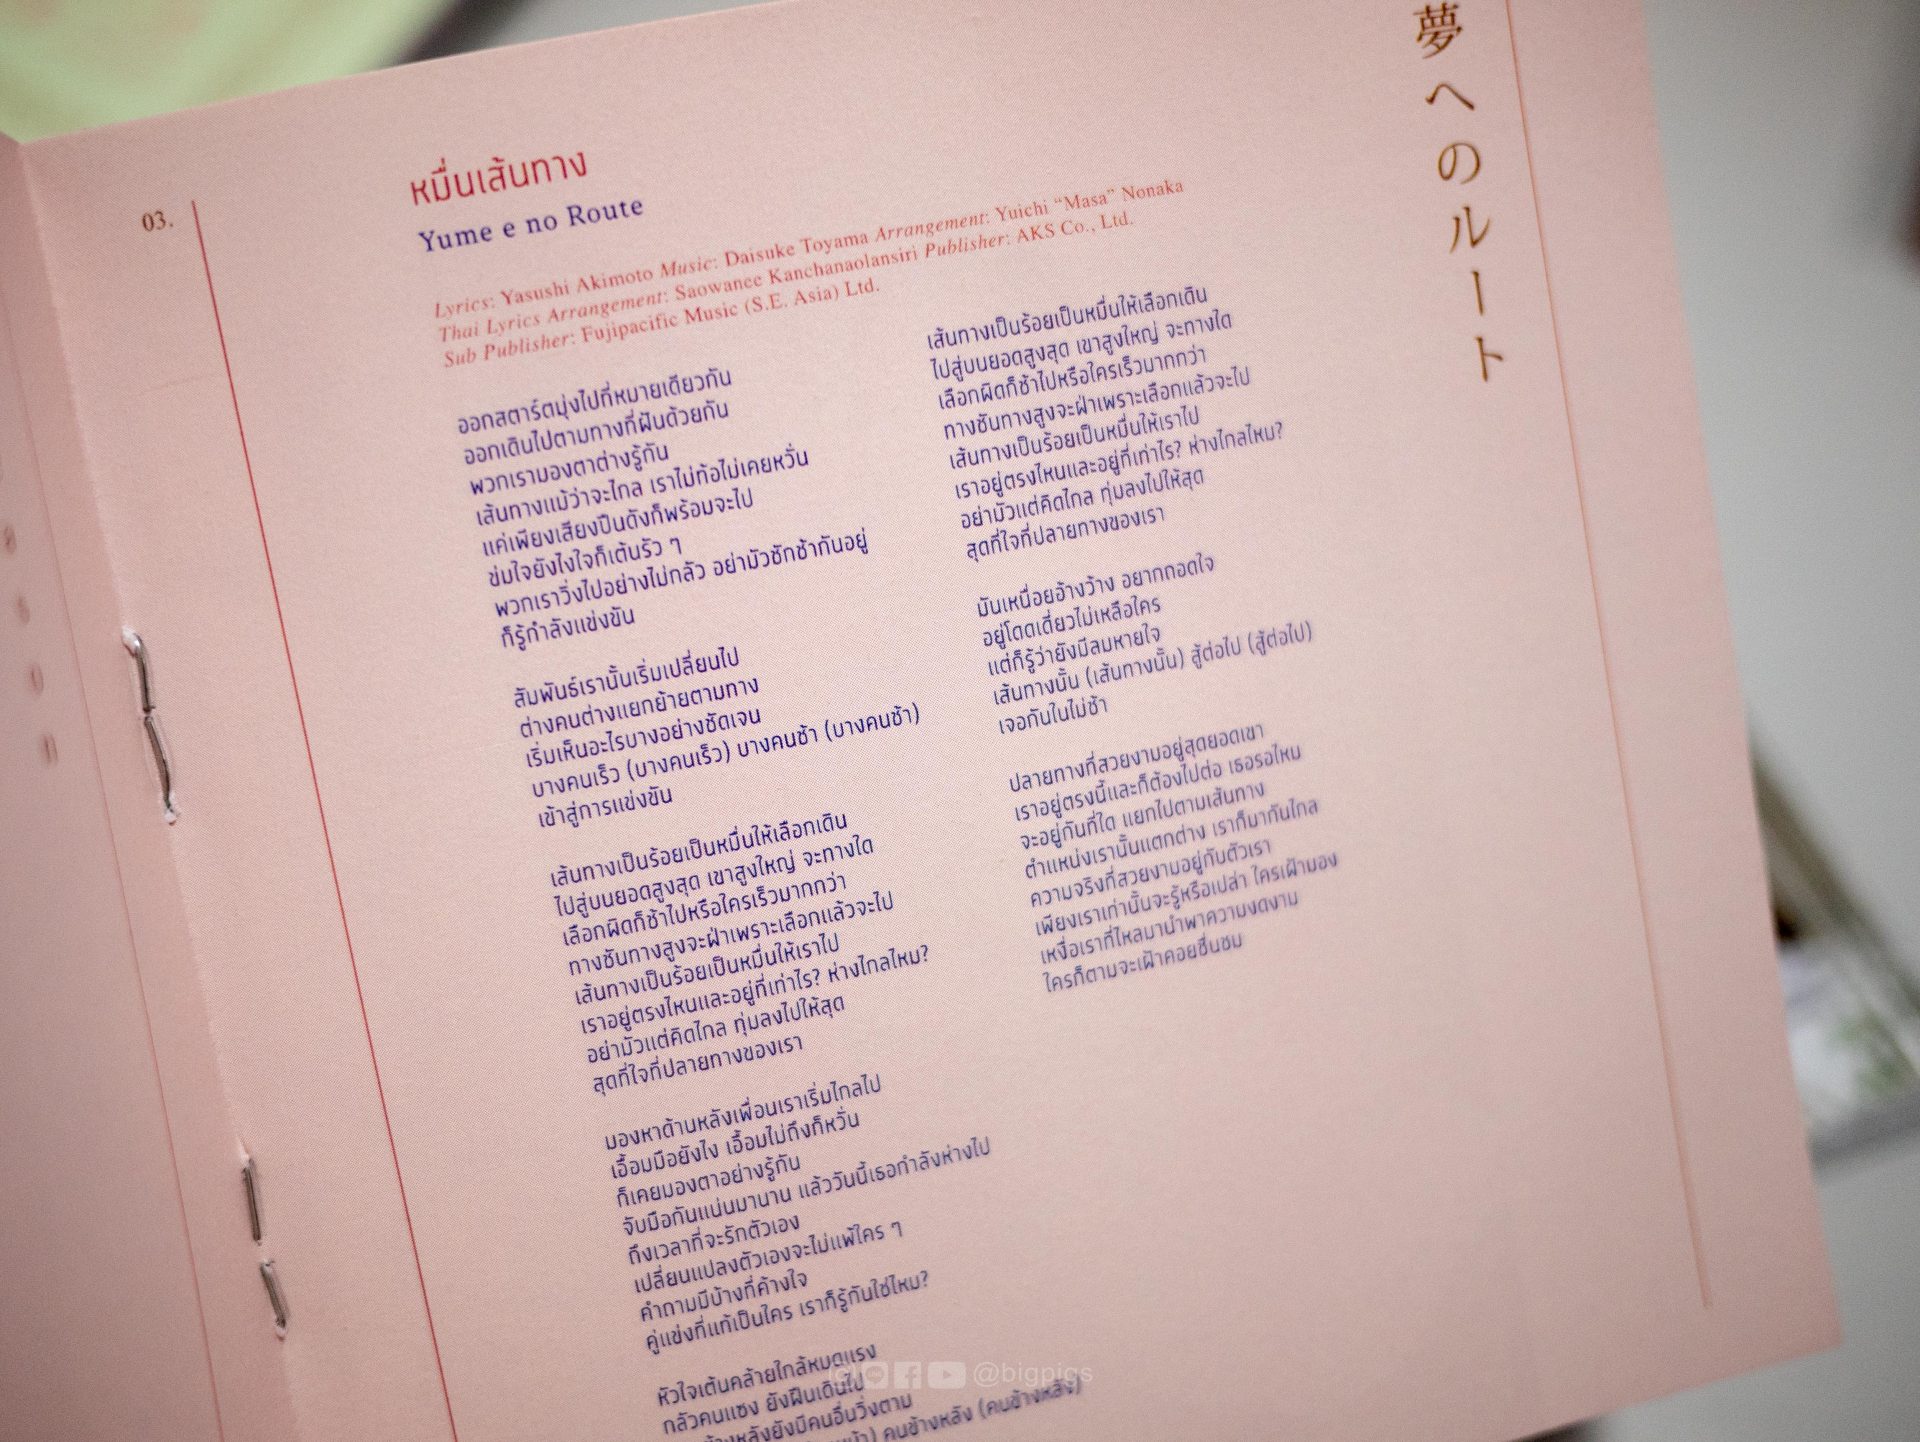 03.
หมื่นเส้นทาง
Yume e no Route
夢へのルート
Lyrics: Yasushi Akimoto Music: Daisuke Toyama Arrangement: Yuichi “Masa” Nonaka
Thai Lyrics Arrangement: Saowanee Kanchanaolansiri Publisher: AKS Co., Ltd.
Sub Publisher: Fujipacific Music (S.E. Asia) Ltd.
ออกสตาร์ตมุ่งไปที่หมายเดียวกัน
ออกเดินไปตามทางที่ฝันด้วยกัน
พวกเรามองตาต่างรู้กัน
เส้นทางแม้ว่าจะไกล เราไม่ท้อไม่เคยหวั่น
แค่เพียงเสียงปืนดังก็พร้อมจะไป
ข่มใจยังไงใจก็เต้นรัว ๆ
พวกเราวิ่งไปอย่างไม่กลัว อย่ามัวชักช้ากันอยู่
ก็รู้กำลังแข่งขัน
สัมพันธ์เรานั้นเริ่มเปลี่ยนไป
ต่างคนต่างแยกย้ายตามทาง
เริ่มเห็นอะไรบางอย่างชัดเจน
บางคนเร็ว (บางคนเร็ว) บางคนช้า (บางคนช้า)
เข้าสู่การแข่งขัน
เส้นทางเป็นร้อยเป็นหมื่นให้เลือกเดิน
ไปสู่บนยอดสูงสุด เขาสูงใหญ่ จะทางใด
เลือกผิดก็ช้าไปหรือใครเร็วมากกว่า
ทางชันทางสูงจะฝ่าเพราะเลือกแล้วจะไป
เส้นทางเป็นร้อยเป็นหมื่นให้เราไป
เราอยู่ตรงไหนและอยู่ที่เท่าไร? ห่างไกลไหม?
อย่ามัวแต่คิดไกล ทุ่มลงไปให้สุด
สุดที่ใจที่ปลายทางของเรา
มองหาด้านหลังเพื่อนเราเริ่มไกลไป
เอื้อมมือยังไง เอื้อมไม่ถึงก็หวั่น
ก็เคยมองตาอย่างรู้กัน
จับมือกันแน่นมานาน แล้ววันนี้เธอกำลังห่างไป
ถึงเวลาที่จะรักตัวเอง
เปลี่ยนแปลงตัวเองจะไม่แพ้ใคร ๆ
คำถามมีบ้างที่ค้างใจ
คู่แข่งที่แท้เป็นใคร เราก็รู้กันใช่ไหม?
หัวใจเต้นคล้ายใกล้หมดแรง
กลัวคนแซง ยังฝืนเดินไป
หลังยังมีคนอื่นวิ่งตาม
คนข้างหลัง (คนข้างหลัง)
เส้นทางเป็นร้อยเป็นหมื่นให้เลือกเดิน
ไปสู่บนยอดสูงสุด เขาสูงใหญ่ จะทางใด
เลือกผิดก็ช้าไปหรือใครเร็วมากกว่า
ทางชันทางสูงจะฝ่าเพราะเลือกแล้วจะไป
เส้นทางเป็นร้อยเป็นหมื่นให้เราไป
เราอยู่ตรงไหนและอยู่ที่เท่าไร? ห่างไกลไหม?
อย่ามัวแต่คิดไกล ทุ่มลงไปให้สุด
สุดที่ใจที่ปลายทางของเรา
มันเหนื่อยอ้างว้าง อยากถอดใจ
อยู่โดดเดี่ยวไม่เหลือใคร
แต่ก็รู้ว่ายังมีลมหายใจ
เส้นทางนั้น (เส้นทางนั้น) สู้ต่อไป (สู้ต่อไป)
เจอกันในไม่ช้า
ปลายทางที่สวยงามอยู่สุดยอดเขา
เราอยู่ตรงนี้และก็ต้องไปต่อ เธอรอไหม
จะอยู่กันที่ใด แยกไปตามเส้นทาง
ตำแหน่งเรานั้นแตกต่าง เราก็มากันไกล
ความจริงที่สวยงามอยู่กับตัวเรา
เพียงเราเท่านั้นจะรู้หรือเปล่า ใครเฝ้ามอง
เหงื่อเราที่ไหลมานำพาความงดงาม
ใครก็ตามจะเฝ้าคอยชื่นชม
@bigpigs